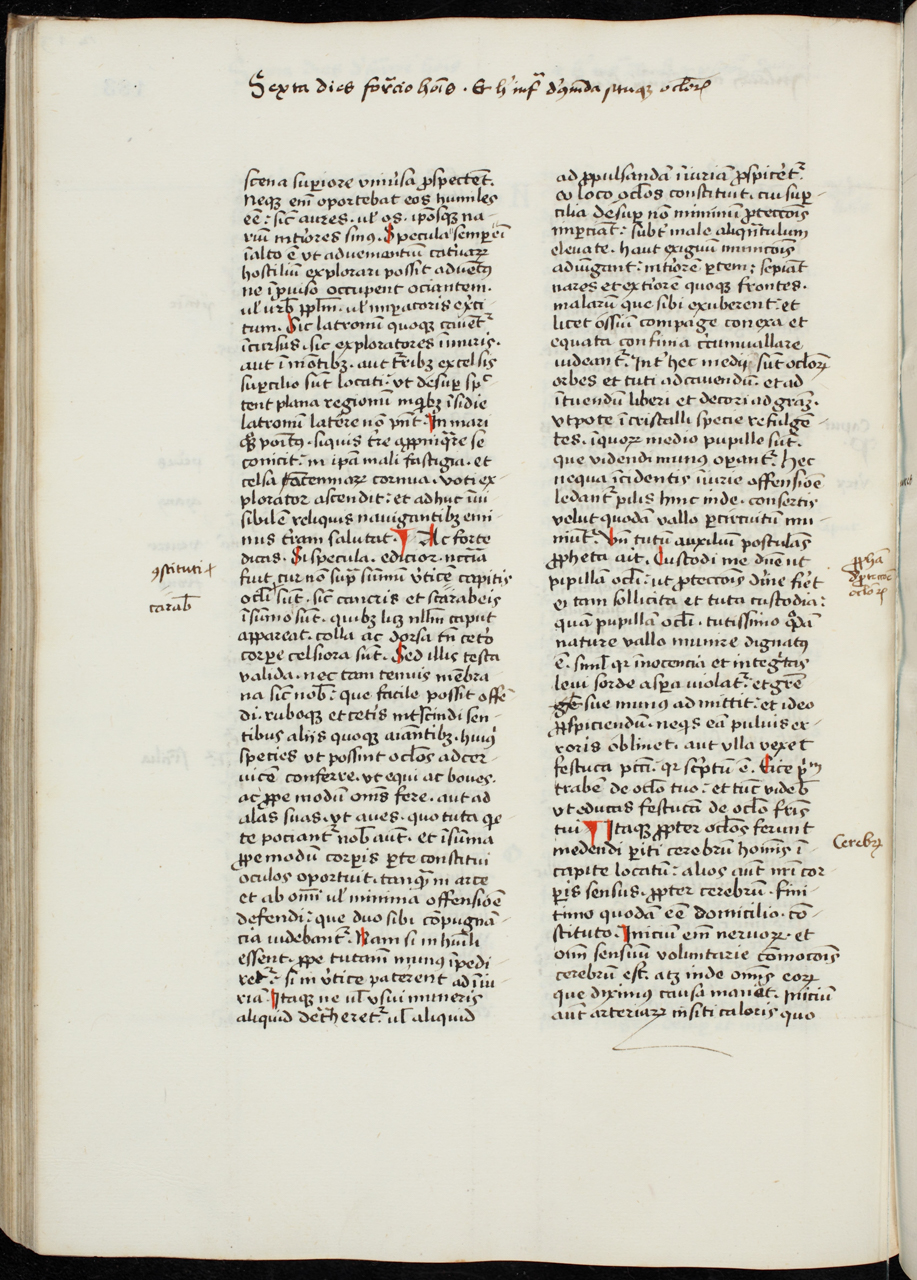 Sexta dies for̄cio hoīs . Et
scena sup̱iore vniu̓sa ꝓspectēt.
Neqꝫ em̄ oportebat eos humiles
eē : sic̄ aures . ul̓ os . ip̄osqꝫ na-
riū int̓iores sinꝯ. Specula semper eī
ī alto ē vt aduenientiū cat̓uaꝝ
hostiliū explorari possit aduētꝯ
ne īꝓuiso occupent ociantem .
ul̓ urb̄ ppl̄m . ul̓ imꝑatoris ex̓ci-
tum . Sic latronū quoqꝫ cauēt᷑
īcursus . sic exploratores ī muris .
aut ī mōtibꝫ . aut t̓ribꝫ excelsis
suꝑcilio sūt locati : vt desuꝑ spc̄-
tent plana regionū in qͥbꝫ īsidie
latronū lat̓ere nō pn̄t . In mari
qꝫ poītꝯ . siquis t̓re apꝓinq̄re se
conicit᷑ : in ip̄a mali fastigia . et
celsa antennarꝝ cornua . voti ex-
plorator ascendit : et adhuc īui
sibilē reliquis nauigantibꝫ emi-
nus t̓ram salutat . ¶ Ac forte
dicas . Si specula . edicior . nc̄c̄ia
fuit cur nō supͣ sūmū v̓tice capitis
ocl̓i sūt . sic̄ cancris et scarabeis
ī sūmo sūt . quibꝫ licꝫ nllm̄ caput
appareat . colla ac dorsa tn̄ cet̓o
corpe celsiora sūt . Sed illis testa
valida . nec tam tenuis mēbra-
na sic̄ nob̄ : que facile possit offē-
di . ruboqꝫ et cet̓is int̓scindi sen-
tibus aliis quoqꝫ aīantibꝫ . huiꝯ
species vt possint oclōs ad cer-
uicē conferre . vt equi ac boues .
ac ꝓpe modū om̄s fere . aut ad
alas suas . vt aues . quo tuta qͥe-
te pociant᷑ nob̄ aūt . et ī sūma
ꝓpe modū corꝑis ꝑte constitui
oculos oportuit . tanqͣ̄ in arce
et ab om̄i ul̓ minima offensiōe
defendi : que duo sibi cōpugnā-
cia uidebant᷑ . Nam si in hūili
essent . ꝓpe tutamī munꝯ īpedi-
ret᷑ : si in v̓tice paterent ad iniu-
riā . Itaqꝫ ne ul̓ vsui muneris
aliquid det̓heret᷑ ul̓ aliquid
ad ꝓpulsandā ī iuriā ꝓspicēt᷑ .
eo loco oclōs constituit . cui suꝑ-
cilia desuꝑ nō minimū ꝓteccōis
imꝑciāt : subt᷑ male aliqͣntulum
eleuate . haut exiguū municōis
adiūgant : int̓iorē ꝑtem : sepiāt
nares et exterīorē quoqꝫ frontes .
malarū que sibi exuberent : et
licet ossiū compage conexa et
equata confinia circumuallare
uideant᷑ . Int᷑ hec medij sūt ocloꝝ
orbes et tuti ad cauendū . et ad
ītuendū liberi et decori ad grām .
vtpote ī cristalli specie refulgē-
tes . īquoꝝ medio pupille sūt .
que videndi munꝯ oꝑant᷑ . hec
nequa īcidentis iiurie offensiōe
ledant᷑ pilis hinc inde . consertis
velut quodā vallo ꝑ circuitū mu-
niūt᷑ . Vn̄ tutū auxiliū postulās
ꝓpheta ait . Custodi me dn̄e ut
pupillā ocl̓i : ut ꝓteccōis diu̓ne fiēt
ei tam sollicita et tuta custodia :
quā pupillā ocl̓i . tutissimo qͦdā
nature vallo munire dignatꝯ
ē . siml̓ qr̄ īnocencia et integͥtas
leui sorde asꝑa violat᷑ : et grē
sue munꝯ admittit : et ideo
ꝓspiciendū . neqꝫ eā puluis er-
roris oblinet . aut vlla vexet
festuca pcc̄i . qr̄ sc̓ptū ē . Eice pͥᵐ
trabē de oclo tuo : et tūc videb̄
vt educas festucā de oclo fr̄is
tui ¶ Itaqꝫ ꝓpter oclōs ferunt
medendi ꝑiti cerebrū homīs ī
capite locatū : alios aūt nr̄i cor-
ꝑis sensus . ꝓpter cerebrū . fini-
timo quodā eē domicilio . cō-
stituto . Iniciū em̄ neruoꝝ . et
om̄ sensuū voluntarie cōmocōis
cerebrū est . atqꝫ inde om̄is eoꝝ
que diximꝯ causa manet . Iniciū
aūt arteriaꝝ insiti caloris quo
ꝯstituti
ꝓphā
Cerebꝝ